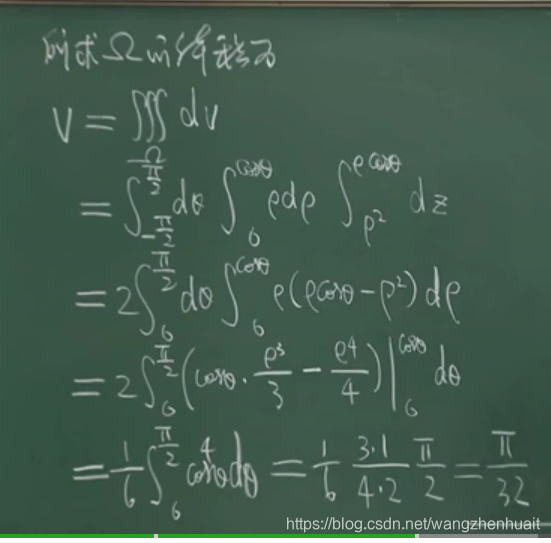 则求Ω的体积为
V = ∭_Ω dv
= ∫_{-π/2}^{π/2} dθ ∫_0^{cosθ} ρdρ ∫_{ρ²}^{ρcosθ} dz
= 2∫_0^{π/2} dθ ∫_0^{cosθ} ρ(ρcosθ - ρ²) dρ
= 2∫_0^{π/2} (cosθ · ρ³/3 - ρ⁴/4)|_0^{cosθ} dθ
= 1/6 ∫_0^{π/2} cos⁴θdθ = 1/6 · 3·1/4·2 · π/2 = π/32
https://blog.csdn.net/wangzhenhuait